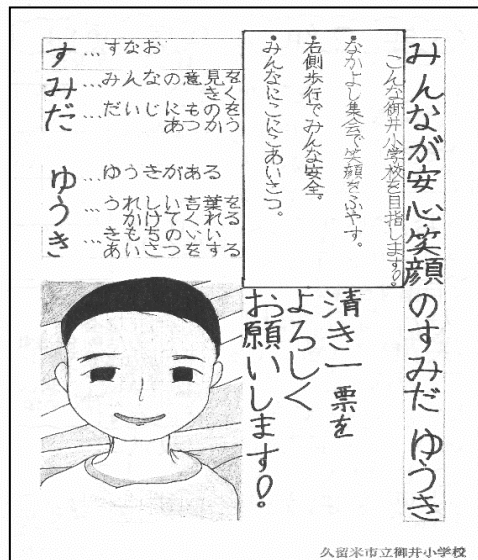 みんなが安心笑顔のすみだ ゆうき
こんな御井小学校を目指します!
・なかよし集会で笑顔をふやす。
・右側歩行でみんな安全。
・みんなにこにこあいさつ。
す…すなお
み…みんなの意見をきく
だ…だいじにものをあつかう
ゆ…ゆうきがある
う…
き…
清き一票を
よろしく
お願いします!
久留米市立御井小学校